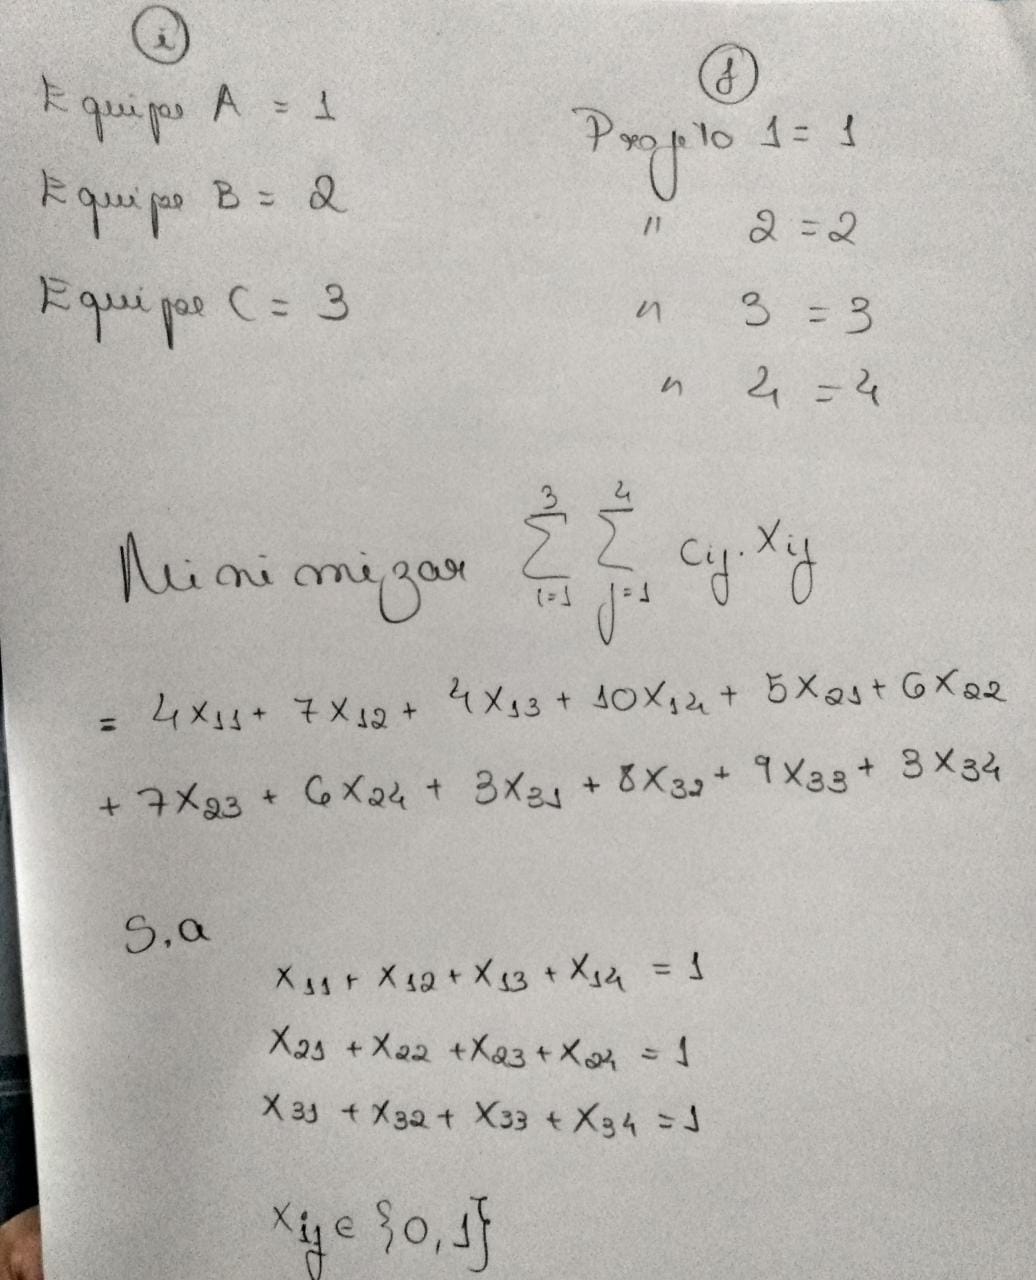 i
j
Equipe A = 1
Projeto 1 = 1
Equipe B = 2
" 2 = 2
Equipe C = 3
" 3 = 3
" 4 = 4
Minimizar ∑_{i=1}^{3} ∑_{j=1}^{4} cij . Xij
= 4X11 + 7X12 + 4X13 + 10X14 + 5X21 + 6X22
+ 7X23 + 6X24 + 3X31 + 8X32 + 9X33 + 3X34
S.a
X11 + X12 + X13 + X14 = 1
X21 + X22 + X23 + X24 = 1
X31 + X32 + X33 + X34 = 1
Xij ∈ {0,1}